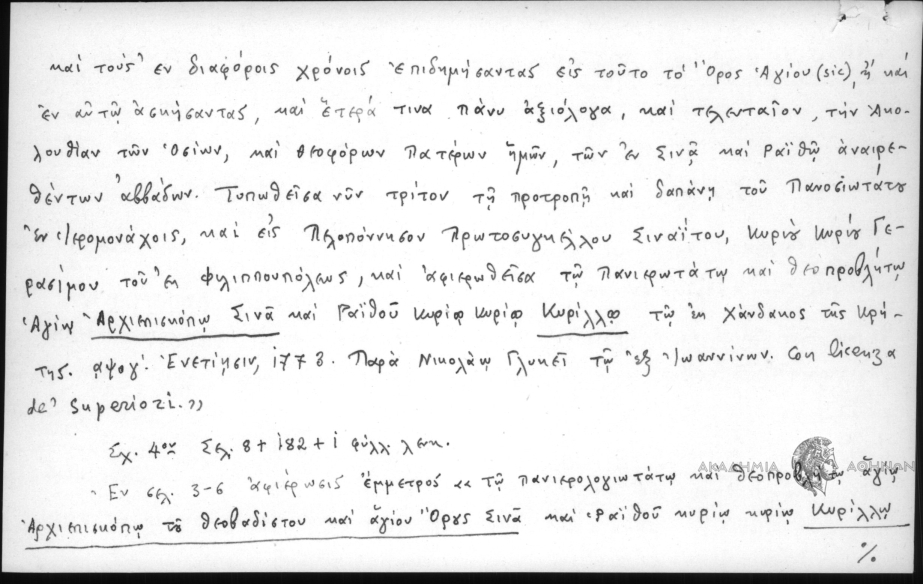 καὶ τοὺς ἐν διαφόροις χρόνοις ἐπιδημήσαντας εἰς τοῦτο τὸ Ὄρος Ἁγίου (sic), ἢ καὶ
ἐν αὐτῷ ἀσκήσαντας, καὶ ἕτερά τινα πάνυ ἀξιόλογα, καὶ τελευταῖον, τὴν Ἀκο-
λουθίαν τῶν Ὁσίων, καὶ θεοφόρων Πατέρων ἡμῶν, τῶν ἐν Σινᾷ καὶ Ραϊθῷ ἀναιρε-
θέντων ἀββάδων. Τυπωθεῖσα νῦν τρίτον τῇ προτροπῇ καὶ δαπάνῃ τοῦ Πανοσιωτάτου
ἐν Ἱερομονάχοις, καὶ εἰς Πελοπόννησον Πρωτοσυγκέλλου Σιναΐτου, Κυρίου Κυρίου Γε-
ρασίμου τοῦ ἐκ Φιλιππουπόλεως, καὶ ἀφιερωθεῖσα τῷ Πανιερωτάτῳ καὶ θεοπροβλήτῳ
Ἁγίῳ Ἀρχιεπισκόπῳ Σινᾶ καὶ Ραϊθοῦ Κυρίῳ Κυρίῳ Κυρίλλῳ τῷ ἐκ Χάνδακος τῆς Κρή-
της. αψογ΄. Ἐνετίῃσιν, 1773. Παρὰ Νικολάῳ Γλυκεῖ τῷ ἐξ Ἰωαννίνων. Con licenza
de' Superiori.»
Σχ. 4ον Σελ. 8 + 182 + 1 φύλλ. λευκ.
Ἐν σελ. 3-6 ἀφιέρωσις ἔμμετρος «τῷ πανιερολογιωτάτῳ καὶ θεοπροβλήτῳ ἁγίῳ
Ἀρχιεπισκόπῳ τοῦ θεοβαδίστου καὶ ἁγίου Ὄρους Σινᾶ καὶ Ῥαϊθοῦ κυρίῳ κυρίῳ Κυρίλλῳ
%
ΑΚΑΔΗΜΙΑ ΑΘΗΝΩΝ